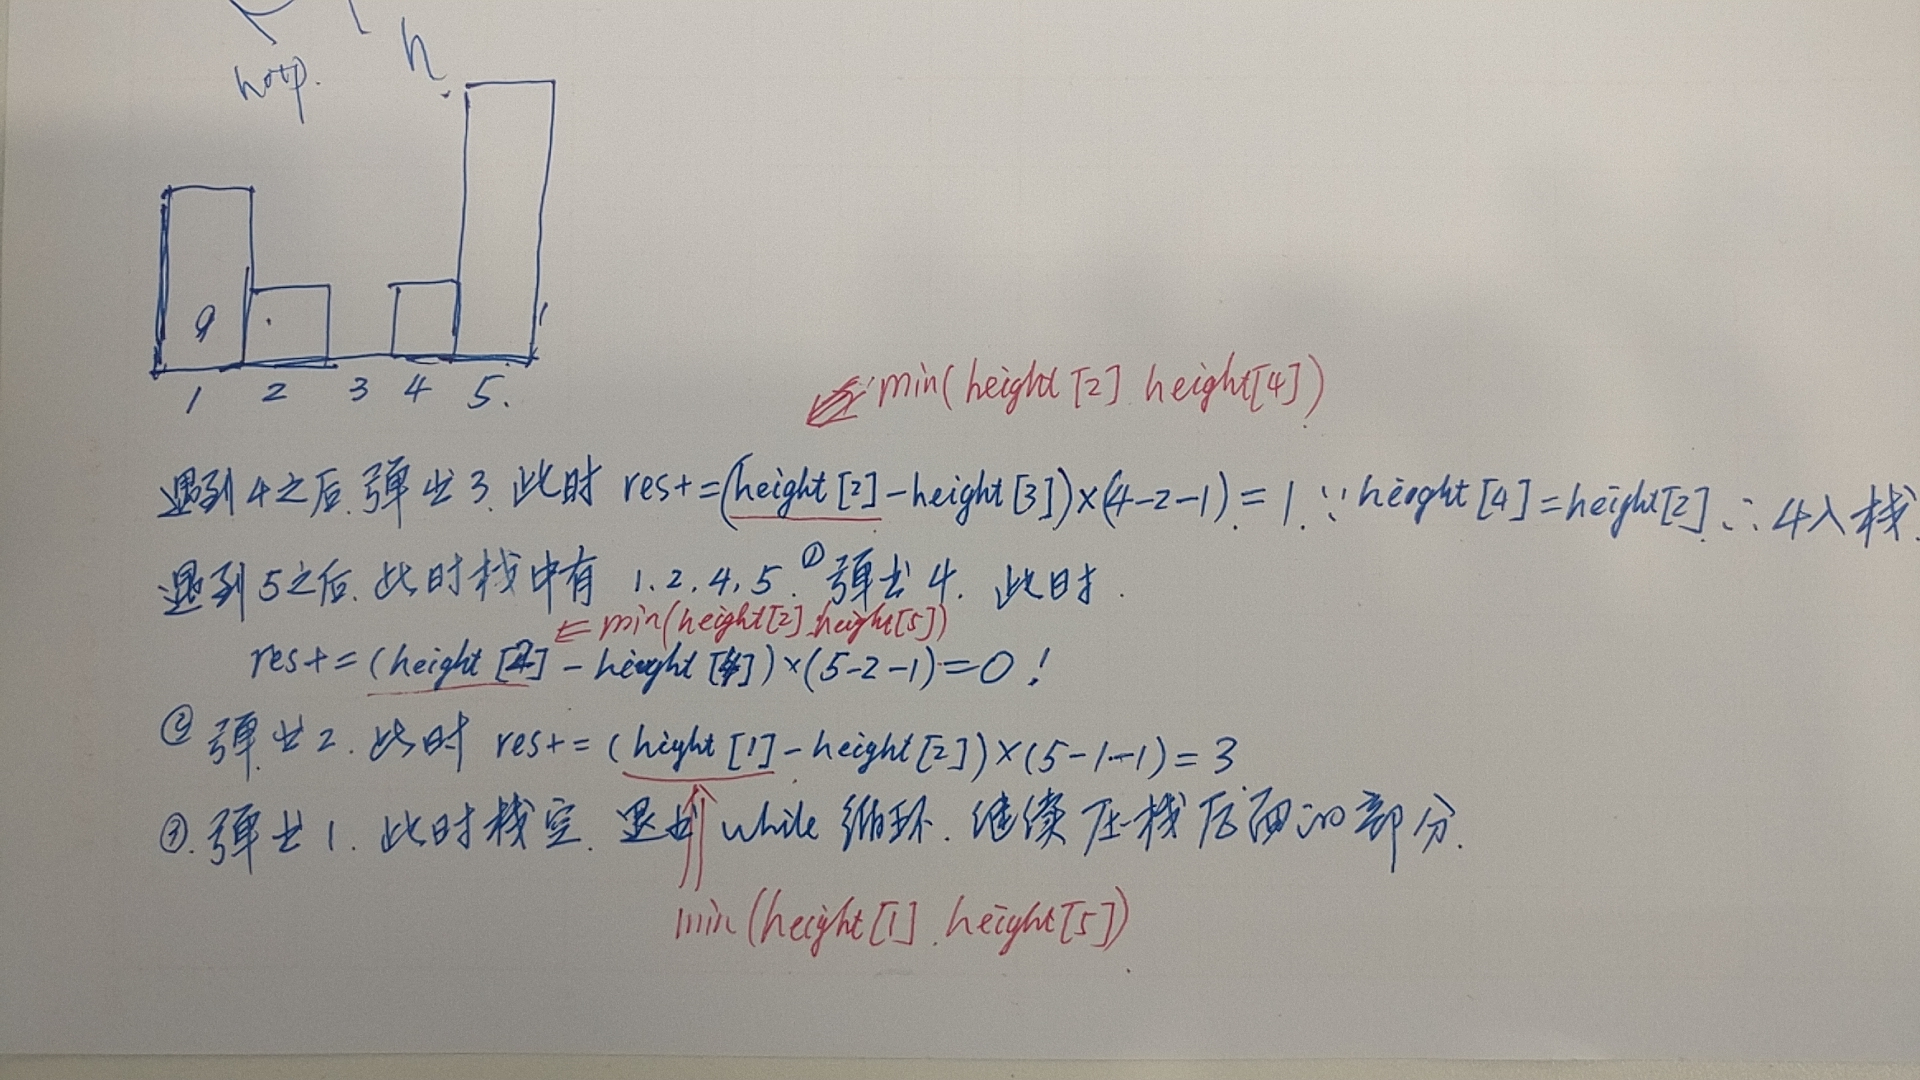 h
1 2 3 4 5.
min(height[2] height[4])
遇到4之后.弹出3.此时 res+=(height[2]-height[3])×(4-2-1)=1.∵height[4]=height[2].∴4入栈.
遇到5之后.此时栈中有 1.2.4.5.①弹出4.此时.
⇐min(height[2].height[5])
res+=(height[2]-height[4])×(5-2-1)=0!
②弹出2.此时 res+=(hight[1]-height[2])×(5-1-1)=3
③.弹出1.此时栈空.退出while循环.继续压栈后面的部分.
min(height[1].height[5])